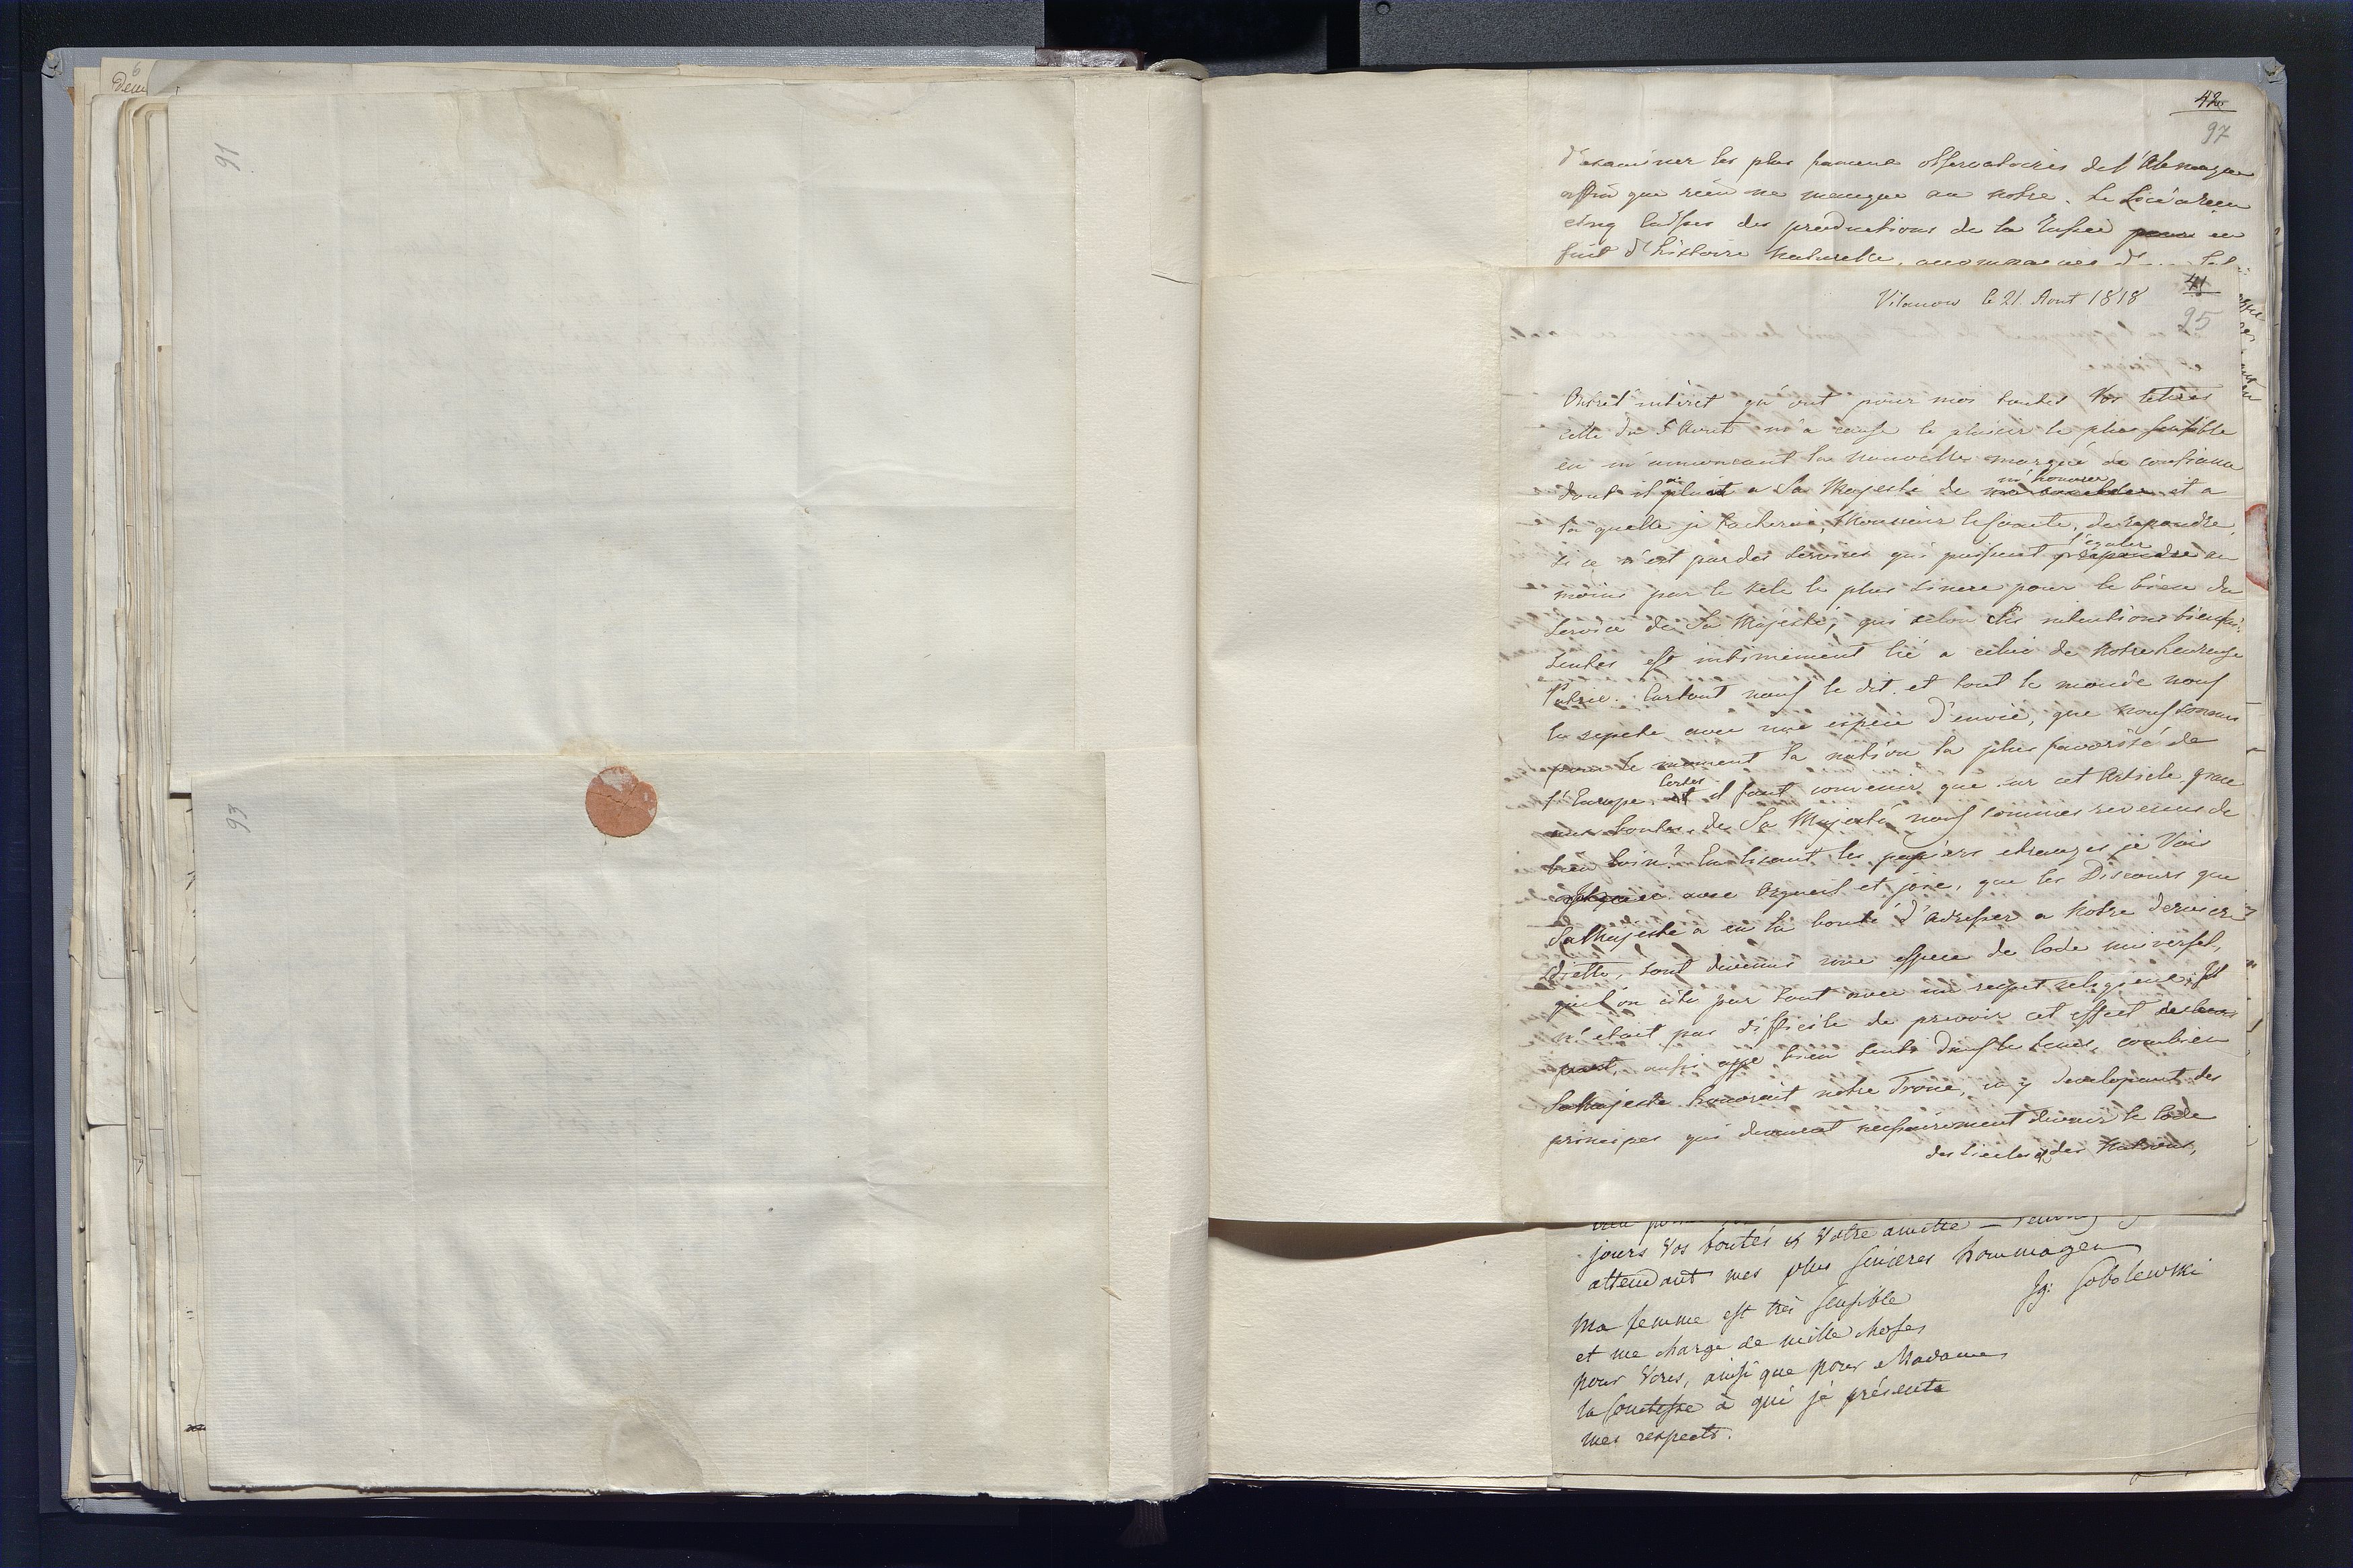 6
Deux
91
93
42
97
d'examiner les plus fameux observatoires de l'Alemagne
affin que rien ne manque au notre. Le Licé a reçu
cinq caisses des productions de la Russie pour en
fait d'histoire naturelle, accompagnées
41
95
Vilanow le 21. Aout 1818
Outre l'intéret qu'ont pour moi toutes Vos lettres
celle du 5 Aout m'a causé le plaisir le plus sensible
en m'annoncant la nouvelle marque de confiance
dont il plait a Sa Majesté de m'honorer et a
la quelle je tacherai, Monsieur le Comte, de repondre,
si ce n'est par des services qui puissent l'egaler au
moins par le zele le plus sincere pour le bien du
Service de Sa Majesté, qui selon Ses intentions bienfai-
santes est intimement lié a celui de Notre heureuse
Patrie. Partout nous le dit et tout le monde nous
le repete avec une espece d'envie, que nous sommes
pour le moment la nation la plus favorisé de
l'Europe, certes il faut convenir que sur cet Article, grace
aux bontés de Sa Majesté nous sommes revenus de
bien loin! En lisant les papiers etrangés je Vois
avec Orgueil et joie, que les Discours que
Sa Majesté a eu la bonté d'adresser a Notre derniere
Diette, sont devenus une espece de Code universel,
que l'on cite par tout avec un respet religieux; Il
n'etait pas difficile de prevoir cet effect
aussi bien senti dans le tems, combien
Sa Majesté honorait notre Trone, en y developant des
principes qui devaient necessairement devenir le Code
des Siecles et des Nations,
jours Vos bontés et Votre amitié
attendant mes plus sincères hommages
Ig: Sobolewski
Ma femme est très sensible
et me charge de mille choses
pour Vous, ainsi que pour Madame
la Comtesse à qui je présente
mes respects.